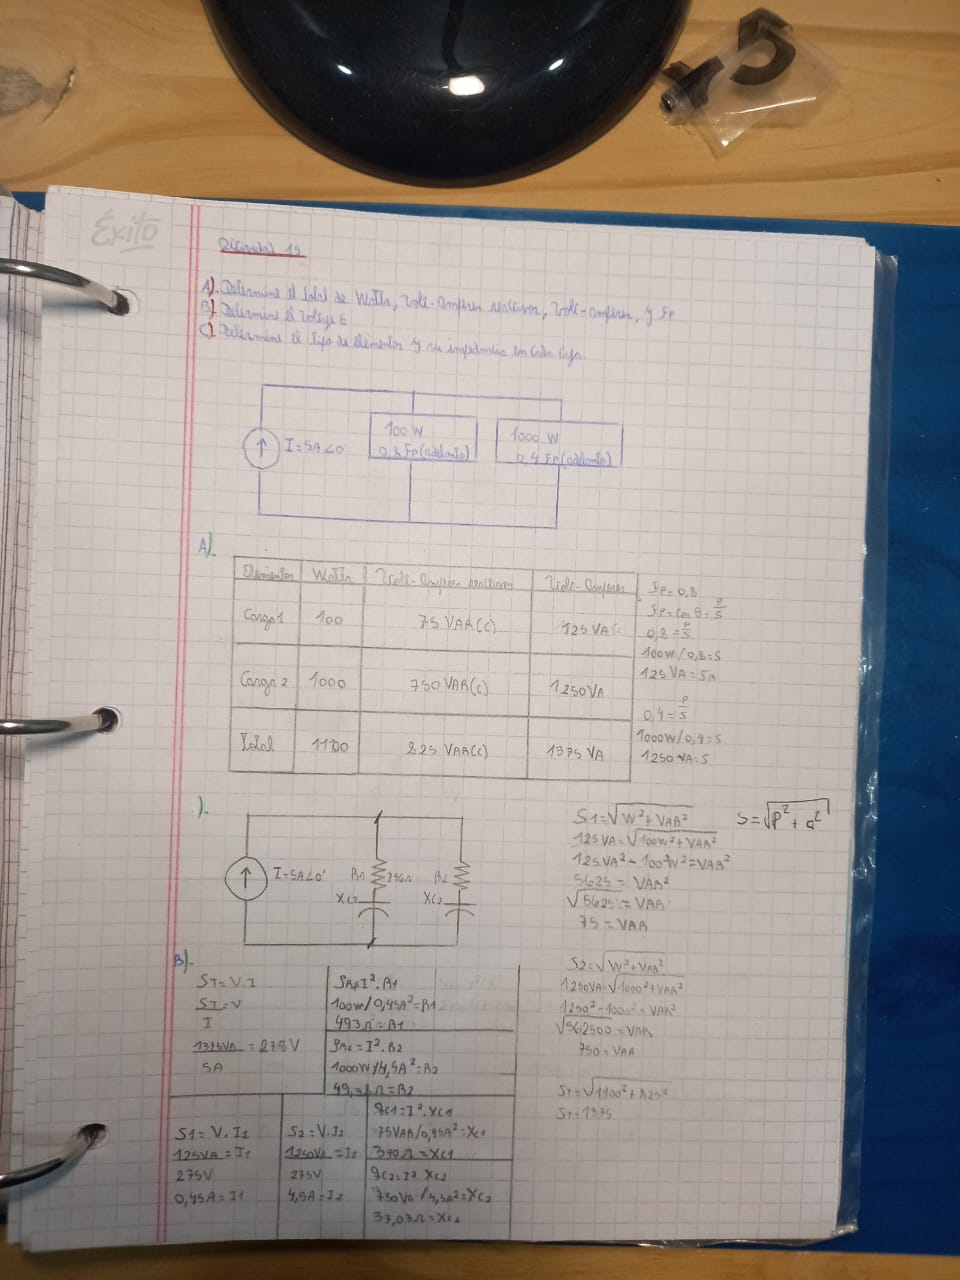 Éxito
A). Determine el total de Watts, Volt-Amperes reactivos, Volt-amperes, y Fp
B). Determine el voltaje E
C). Determine el tipo de elementos y su impedancia en cada caja.
I=5A∠0
100 W
0,8 Fp(adelanto)
1000 W
0,4 Fp(adelanto)
A).
Elementos Watts Volt-Amperes reactivos Volt-Amperes
Carga 1 100 75 VAR(C) 125 VA
Carga 2 1000 750 VAR(C) 1250 VA
Total 1100 825 VAR(C) 1375 VA
Fp=0,8
Fp=cos θ=P/S
0,8=P/S
100W/0,8=S
125 VA=S
0,4=P/S
1000W/0,4=S
1250 VA=S
).
I=5A∠0°
R1
R2
XC1
XC2
S1=√W²+VAR²
125VA=√100W²+VAR²
125VA²-100W²=VAR²
5625=VAR²
√5625=VAR
75=VAR
S=√P²+Q²
S2=√W²+VAR²
1250VA=√1000²+VAR²
1250²-1000²=VAR²
√562500=VAR
750=VAR
ST=√1100²+825²
ST=1375
B).
ST=V.I
ST=V
I
1375VA=275V
5A
100W/0,45A²=R1
493Ω=R1
PR2=I².R2
1000W/4,5A²=R2
49,38Ω=R2
S1=V.I1
125VA=I1
275V
0,45A=I1
S2=V.I2
1250VA=I2
275V
4,5A=I2
QC1=I².XC1
75VAR/0,45A²=XC1
370Ω=XC1
QC2=I².XC2
750VA/4,5A²=XC2
37,03Ω=XC2